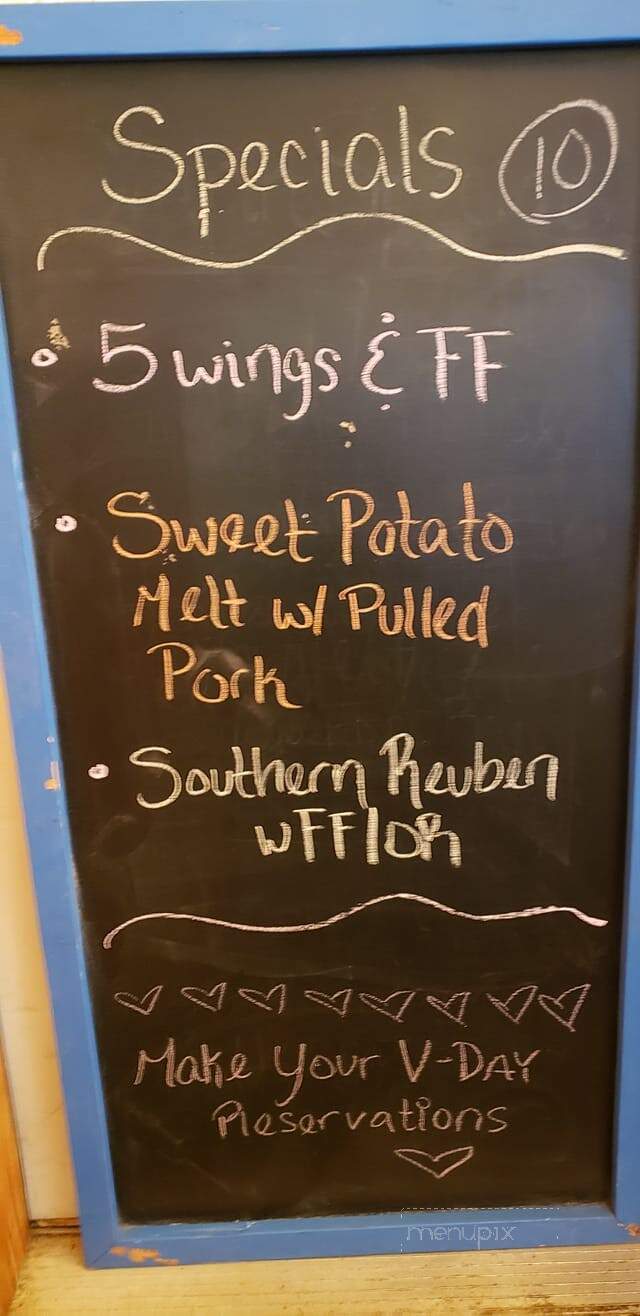 Specials 10
5 wings & FF
Sweet Potato
Melt w/ Pulled
Pork
Southern Reuben
w FF / OR
Make Your V-DAY
Reservations
menupix